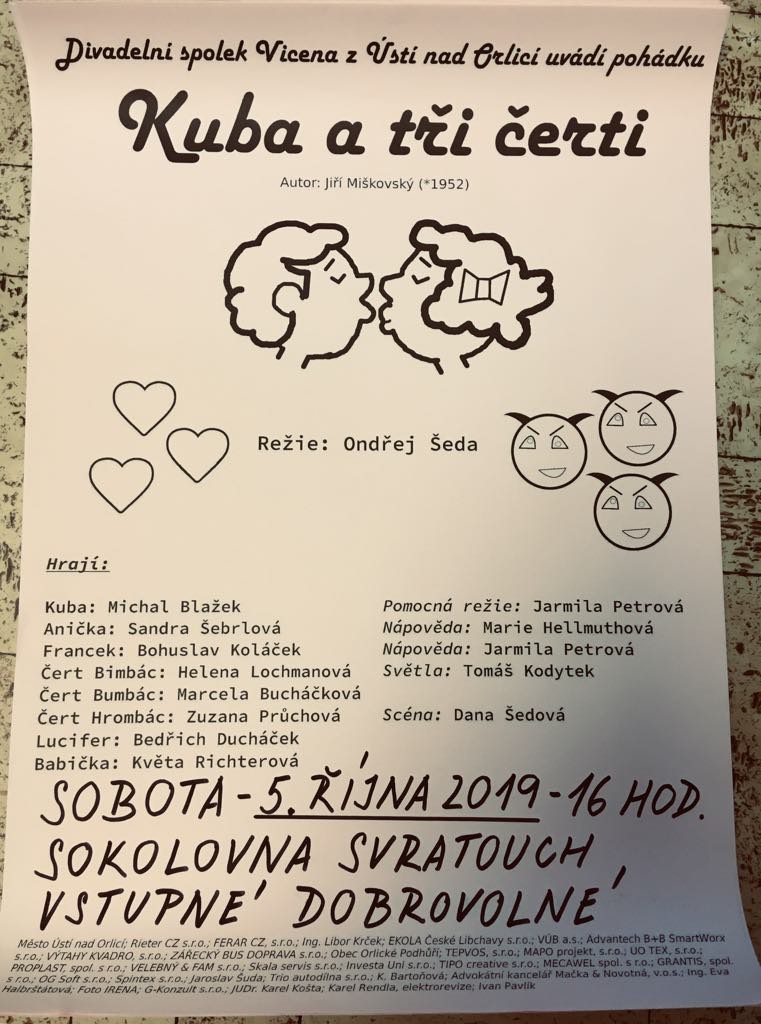 Divadelní spolek Vicena z Ústí nad Orlicí uvádí pohádku
Kuba a tři čerti
Autor: Jiří Miškovský (*1952)
Režie: Ondřej Šeda
Hrají:
Kuba: Michal Blažek
Anička: Sandra Šebrlová
Francek: Bohuslav Koláček
Čert Bimbác: Helena Lochmanová
Čert Bumbác: Marcela Bucháčková
Čert Hrombác: Zuzana Průchová
Lucifer: Bedřich Ducháček
Babička: Květa Richterová
Pomocná režie: Jarmila Petrová
Nápověda: Marie Hellmuthová
Nápověda: Jarmila Petrová
Světla: Tomáš Kodytek
Scéna: Dana Šedová
SOBOTA - 5. ŘÍJNA 2019 - 16 HOD.
SOKOLOVNA SVRATOUCH
VSTUPNÉ DOBROVOLNÉ
Město Ústí nad Orlicí; Rieter CZ s.r.o.; FERAR CZ, s.r.o.; Ing. Libor Krček; EKOLA České Libchavy s.r.o.; VÚB a.s.; Advantech B+B SmartWorx
s.r.o.; VÝTAHY KVADRO, s.r.o.; ZÁŘECKÝ BUS DOPRAVA s.r.o.; Obec Orlické Podhůří; TEPVOS, s.r.o.; MAPO projekt, s.r.o.; UO TEX, s.r.o.;
PROPLAST, spol. s r.o.; VELEBNÝ & FAM s.r.o.; Skala servis s r.o.; Investa Uni s.r.o.; TIPO creative s.r.o.; MECAWEL spol. s r.o.; GRANTIS, spol.
s r.o.; OG Soft s.r.o.; Spintex s.r.o.; Jaroslav Šuda; Trio autodílna s.r.o.; K. Bartoňová; Advokátní kancelář Mačka & Novotná, v.o.s.; Ing. Eva
Halbrštátová; Foto IRENA; G-Konzult s.r.o.; JUDr. Karel Košta; Karel Rendla, elektrorevize; Ivan Pavlík